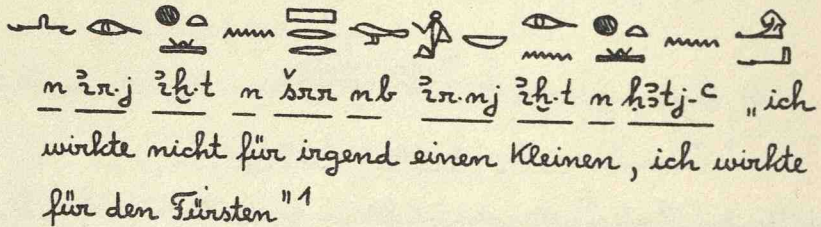 𓂜 𓁹 𓐍𓏏𓏛 𓈖 𓈙𓂋𓂋 𓅪 𓀀 𓎟 𓁹𓈖 𓐍𓏏𓏛 𓈖 𓄂𓂝
n ỉr·j ỉḫ·t n šrr nb ỉr·nj ỉḫ·t n ḥꜣtj-ꜥ „ich
wirkte nicht für irgend einen Kleinen, ich wirkte
für den Fürsten"¹